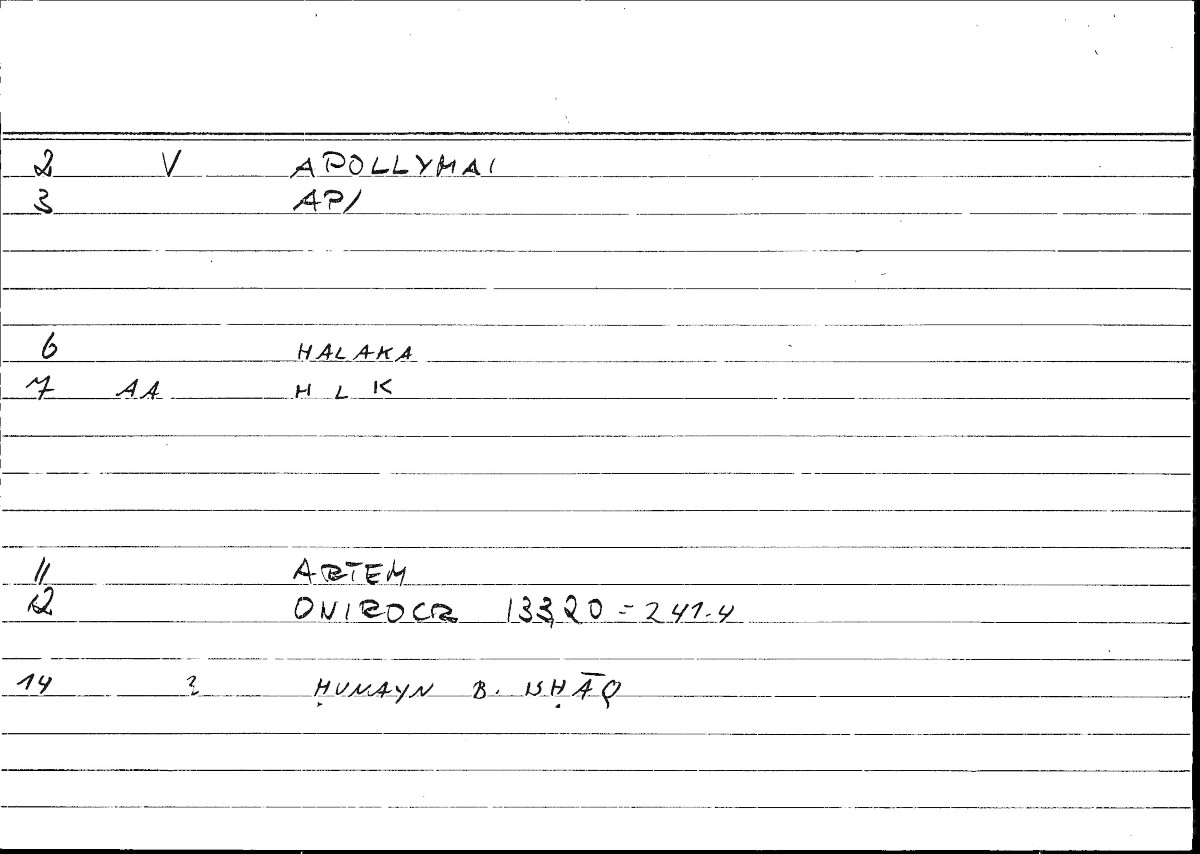 2 V APOLLYMAI
3 API
6 HALAKA
7 AA H L K
11 ARTEM
12 ONIROCR 133,20 = 241.4
14 2 ḤUNAYN B. ISḤĀQ